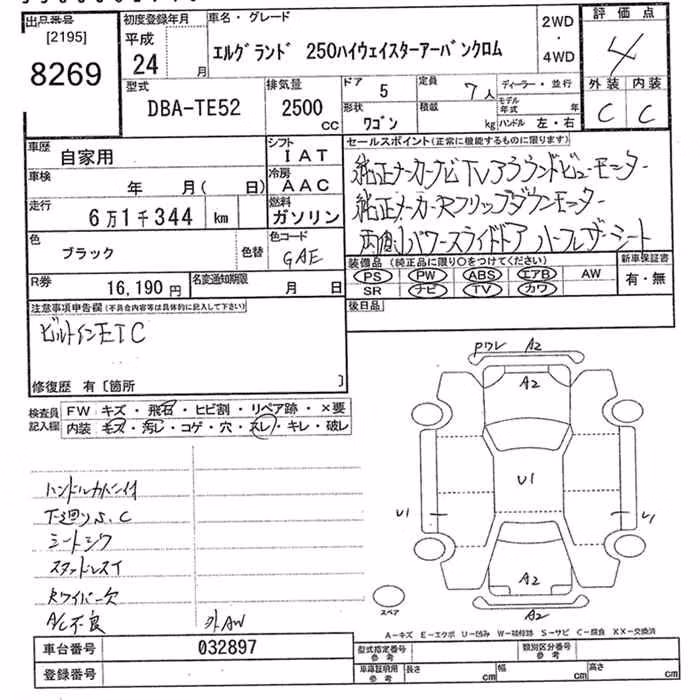 出品番号
[2195]
8269
初度登録年月
平成
24 月
車名・グレード
エルグランド 250ハイウェイスターアーバンクロム
2WD
・
4WD
評価点
4
外装 内装
C C
型式
DBA-TE52
排気量
2500
CC
ドア 5
定員 7人
ディーラー・並行
形状
ワゴン
積載
kg
モデル年式 年
ハンドル 左・右
車歴
自家用
シフト
IAT
車検
年 月( 日)
冷房
AAC
走行
6万1千344 km
燃料
ガソリン
色
ブラック
色替
色コード
GAE
R券
16,190 円
名変通知期限
月 日
セールスポイント(正常に機能するものに限ります)
純正メーカーナビTVアラウンドビューモニター
純正メーカーRフリップダウンモニター
両側パワースライドドア ハーフレザーシート
装備品 (純正品に限り○をつけてください)
PS PW ABS エアB AW
SR ナビ TV カワ
新車保証書
有・無
後日品
注意事項申告欄(不具合内容等は具体的に記入して下さい)
ビルトインETC
修復歴 有〔箇所 〕
検査員
記入欄
FW キズ・飛石・ヒビ割・リペア跡・×要
内装 キズ・汚レ・コゲ・穴・スレ・キレ・破レ
ハンドルカバー付
下廻りS.C
シートシワ
スタッドレスT
Rワイパー欠
A/C不良
外AW
Pワレ A2
A2
U1
U1
U1
A2
A2
スペア
A-キズ E-エクボ U-凹み W-補修跡 S-サビ C-腐食 XX-交換済
車台番号 032897
登録番号
型式指定番号
参考
類別区分番号
参考
車庫証明用
参考
長さ cm
幅 cm
高さ cm